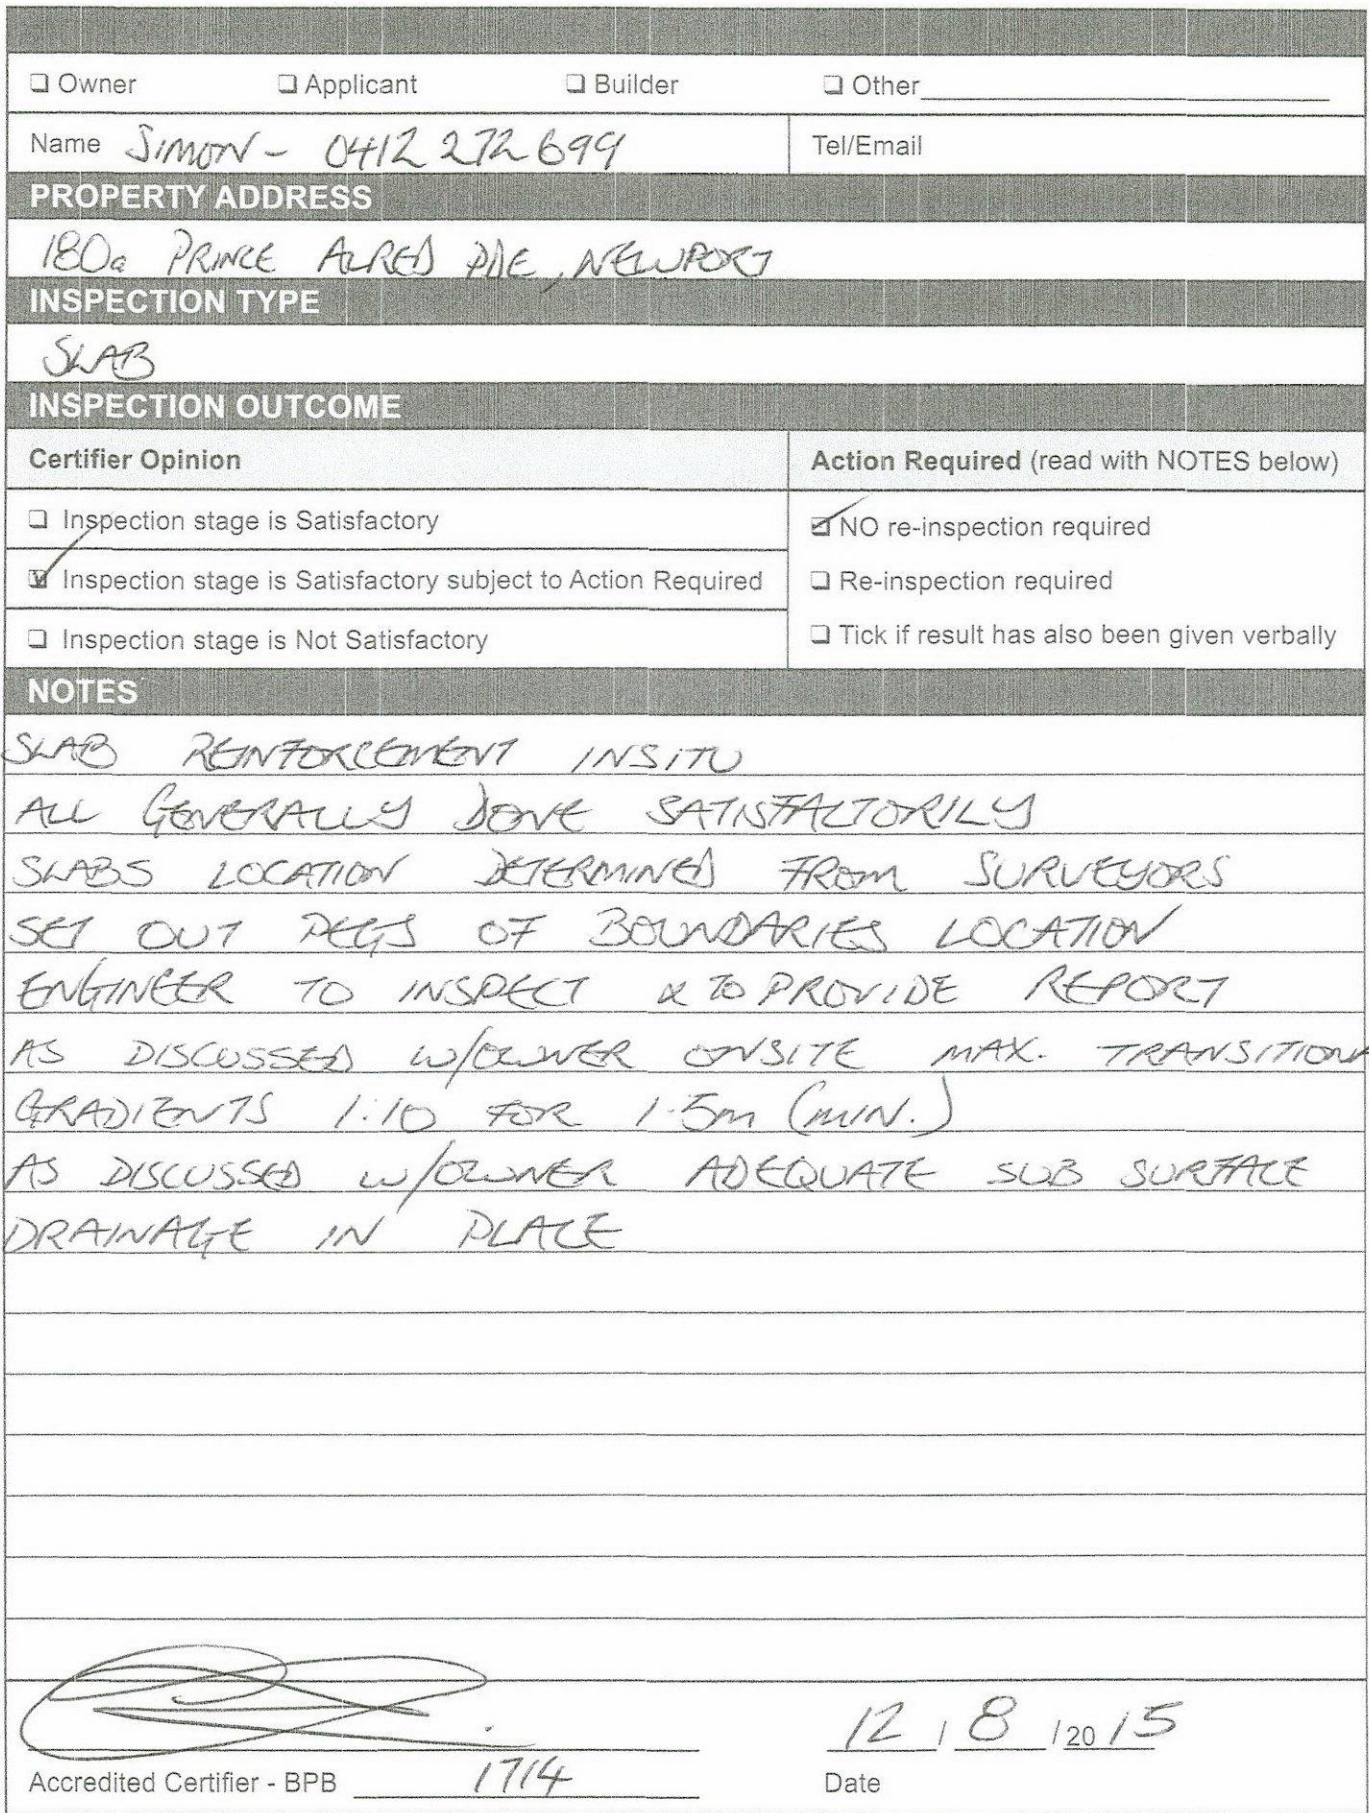 Owner Applicant Builder Other
Name SIMON - 0412 272 699 Tel/Email
PROPERTY ADDRESS
180a PRINCE ALRED PDE, NEWPORT
INSPECTION TYPE
SLAB
INSPECTION OUTCOME
Certifier Opinion Action Required (read with NOTES below)
Inspection stage is Satisfactory NO re-inspection required
Inspection stage is Satisfactory subject to Action Required Re-inspection required
Inspection stage is Not Satisfactory Tick if result has also been given verbally
NOTES
SLAB REINFORCEMENT INSITU
ALL GENERALLY DONE SATISFACTORILY
SLABS LOCATION DETERMINED FROM SURVEYORS
SET OUT PEGS OF BOUNDARIES LOCATION
ENGINEER TO INSPECT & TO PROVIDE REPORT
AS DISCUSSED W/OWNER ONSITE MAX. TRANSITION
GRADIENTS 1:10 FOR 1.5m (MIN.)
AS DISCUSSED W/OWNER ADEQUATE SUB SURFACE
DRAINAGE IN PLACE
12 / 8 / 20 15
Accredited Certifier - BPB 1714 Date